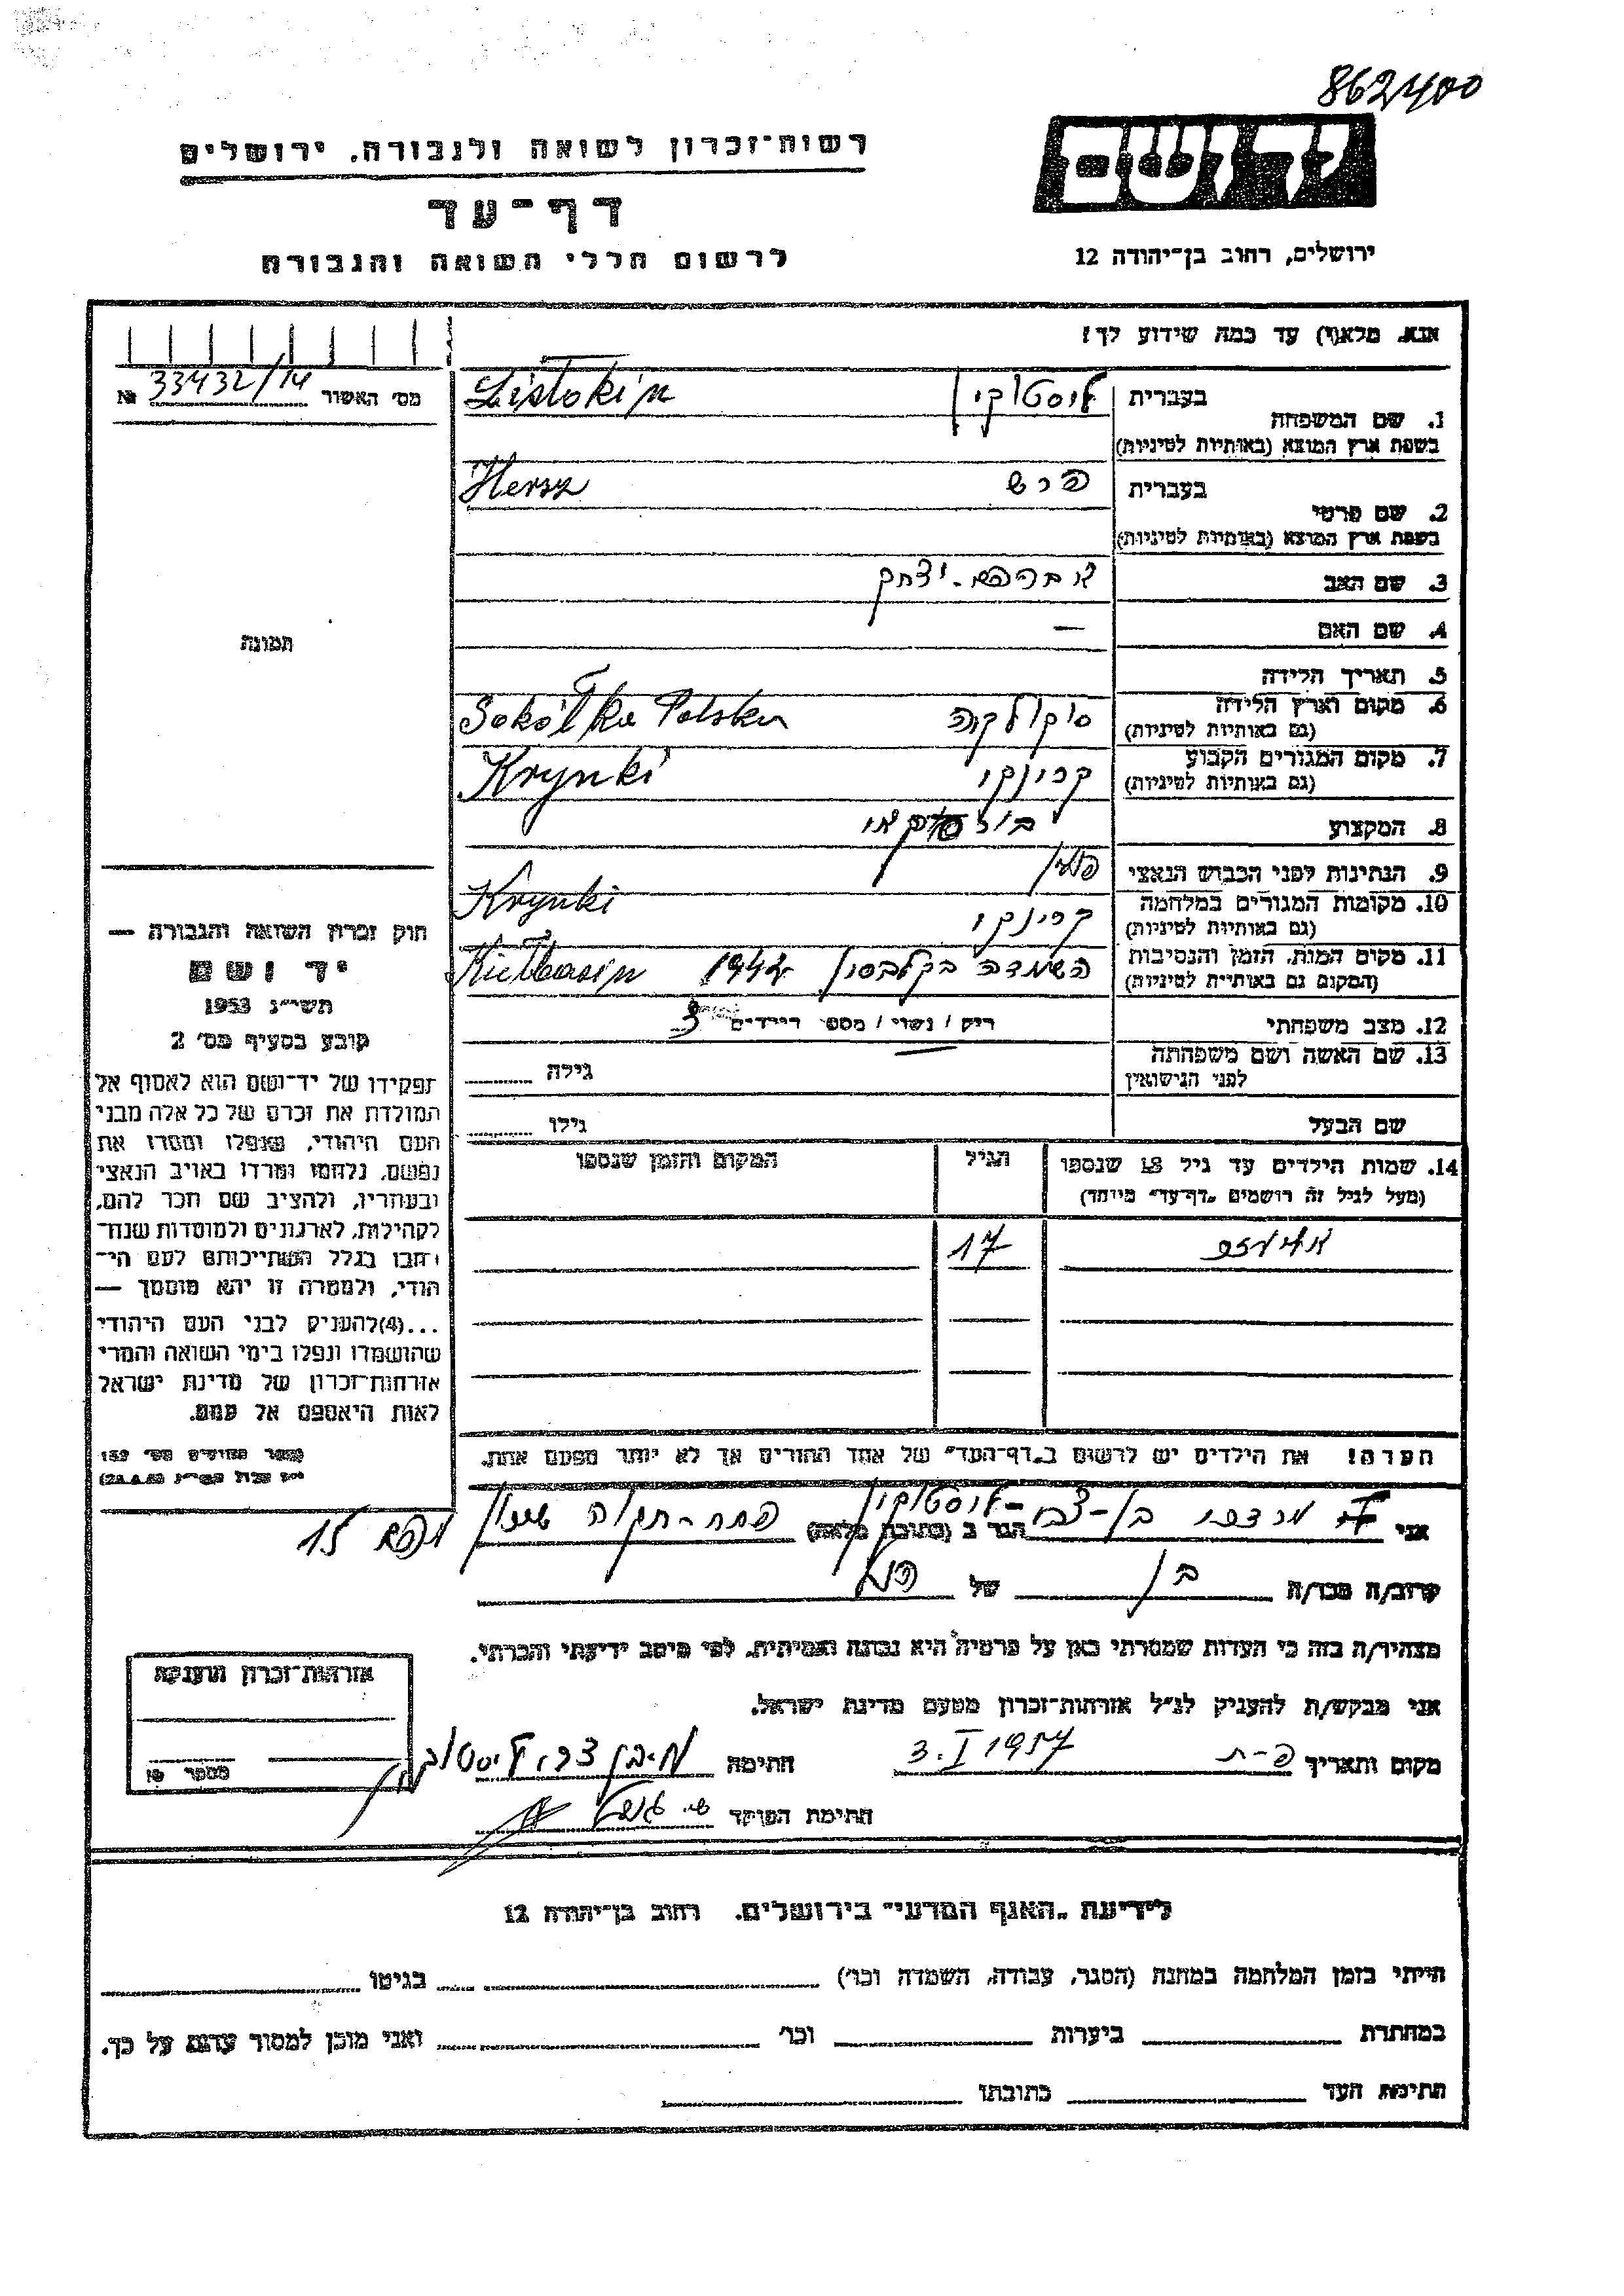 862400
רשות־זכרון לשואה ולגבורה, ירושלים
יד ושם
דף־עד
לרשום חללי השואה והגבורה
ירושלים, רחוב בן־יהודה 12
אנא, מלא(י) עד כמה שידוע לך!
מס׳ האשור 33432/14 №
בעברית ליסטוקין Listokin
1. שם המשפחה
בשפת ארץ המוצא (באותיות לטיניות)
בעברית הרש Hersz
2. שם פרטי
בשפת ארץ המוצא (באותיות לטיניות)
3. שם האב אברהם-יצחק
4. שם האם —
תמונה
5. תאריך הלידה
6. מקום וארץ הלידה סוקולקה Sokółka Polska
(גם באותיות לטיניות)
7. מקום המגורים הקבוע קרינקי Krynki
(גם באותיות לטיניות)
8. המקצוע
9. הנתינות לפני הכבוש הנאצי פולין
10. מקומות המגורים במלחמה קרינקי Krynki
(גם באותיות לטיניות)
11. מקום המות, הזמן והנסיבות השמדה בקלבסין 1942 Kiełbasin
(המקום גם באותיות לטיניות)
12. מצב משפחתי רוק / נשוי / מספר הילדים 3
13. שם האשה ושם משפחתה גילה
לפני הנישואין
שם הבעל גילו
חוק זכרון השואה והגבורה —
יד ושם
תשי״ג 1953
קובע בסעיף מס׳ 2
תפקידו של יד־ושם הוא לאסוף אל
המולדת את זכרם של כל אלה מבני
העם היהודי, שנפלו ומסרו את
נפשם, נלחמו ומרדו באויב הנאצי
ובעוזריו, ולהציב שם וזכר להם,
לקהילות, לארגונים ולמוסדות שנח־
רבו בגלל השתייכותם לעם הי־
הודי, ולמטרה זו יהא מוסמך —
...(4) להעניק לבני העם היהודי
שהושמדו ונפלו בימי השואה והמרי
אזרחות־זכרון של מדינת ישראל
לאות היאספם אל עמם.
14. שמות הילדים עד גיל 18 שנספו הגיל המקום והזמן שנספו
(מעל לגיל זה רושמים „דף־עד״ מיוחד)
17
הערה! את הילדים יש לרשום ב„דף־העד״ של אחד ההורים אך לא יותר מפעם אחת.
אני מרדכי בן-צבי-ליסטוקין הגר ב (כתובת מלאה) פתח-תקוה 15
קרוב/ה מכר/ה בן של הנ״ל
מצהיר/ה בזה כי העדות שמסרתי כאן על פרטיה היא נכונה ואמיתית, לפי מיטב ידיעתי והכרתי.
אני מבקש/ת להעניק לנ״ל אזרחות־זכרון מטעם מדינת ישראל.
מקום ותאריך פ-ת 3.I 1957 חתימה מ. בן צבי ליסטוקין
חתימת הפוקד
אזרחות־זכרון הוענקה
מספר
לידיעת „האגף המדעי״ בירושלים. רחוב בן־יהודה 12
הייתי בזמן המלחמה במחנה (הסגר, עבודה, השמדה וכו׳) בגיטו
במחתרת ביערות וכו׳ ואני מוכן למסור עדות על כך.
חתימת העד כתובתו